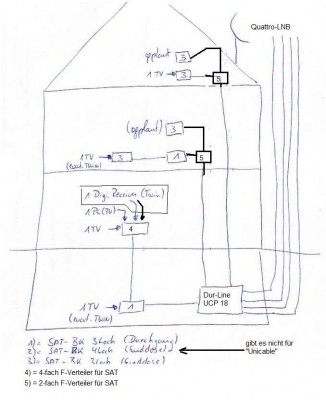 Quattro-LNB
geplant
3
1 TV
3
5
(geplant)
3
1 TV
3
1
5
(event. Twin)
1 Digi. Receiver (Twin)
1 PC (TV)
1 TV
4
1 TV
1
(event. Twin)
Dur-Line
UCP 18
1) = SAT-BK 3 Loch (Durchgang)
2) = SAT-BK 4 Loch (Enddose)
3) = SAT-BK 3 Loch (Enddose)
gibt es nicht für
"Unicable"
4) = 4-fach F-Verteiler für SAT
5) = 2-fach F-Verteiler für SAT